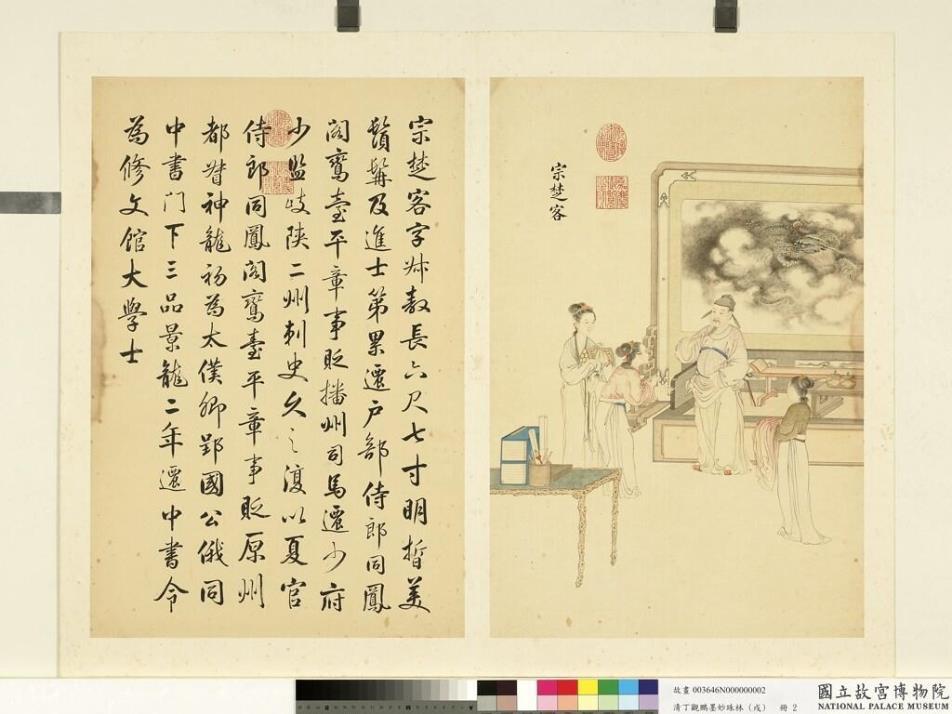 宗楚客
宗楚客字叔敖長六尺七寸明晳美
鬚髯及進士第累遷户部侍郎同鳳
閣鸞臺平章事貶播州司馬遷少府
少監岐陝二州刺史久之復以夏官
侍郎同鳳閣鸞臺平章事貶原州
都督神龍初為太僕卿郢國公俄同
中書門下三品景龍二年遷中書令
為修文館大學士
故畫 003646N000000002
清丁觀鵬墨妙珠林(戌) 冊 2
國立故宮博物院
NATIONAL PALACE MUSEUM